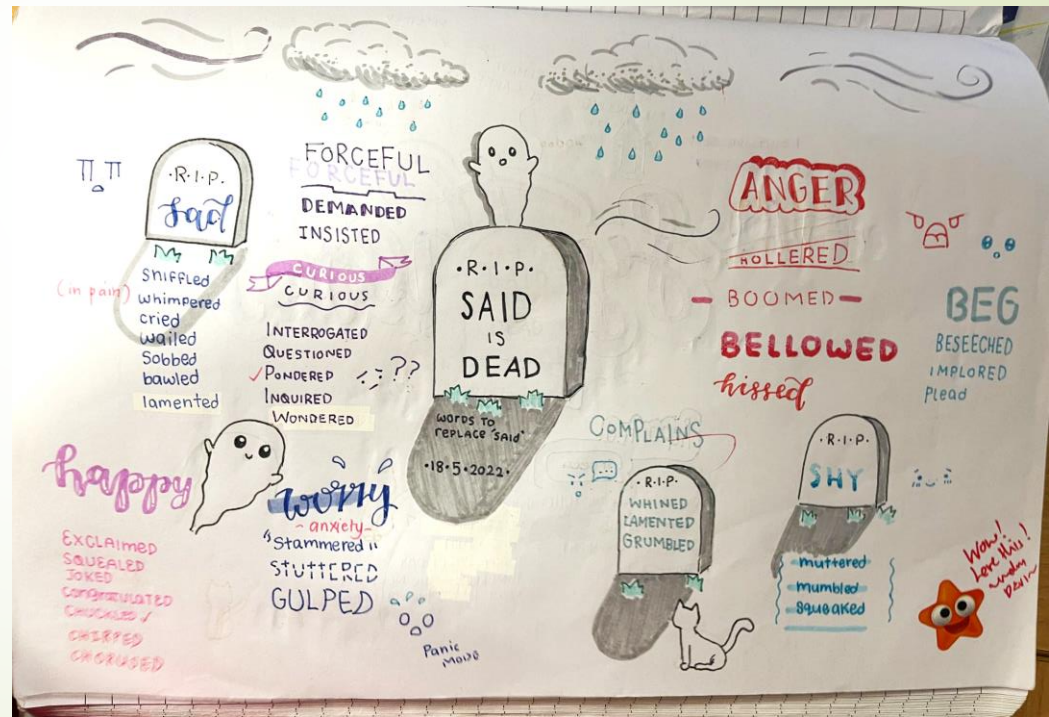 ·R·I·P·
sad
(in pain)
sniffled
whimpered
cried
wailed
sobbed
bawled
lamented
FORCEFUL
FORCEFUL
DEMANDED
INSISTED
CURIOUS
CURIOUS
INTERROGATED
QUESTIONED
PONDERED
??
INQUIRED
WONDERED
·R·I·P·
SAID
IS
DEAD
WORDS TO
REPLACE "SAID"
·18·5·2022·
ANGER
HOLLERED
BOOMED
BELLOWED
hissed
BEG
BESEECHED
IMPLORED
Plead
happy
EXCLAIMED
SQUEALED
JOKED
CONGRATULATED
CHUCKLED
CHIRPED
CHORUSED
worry
- anxiety -
"Stammered"
STUTTERED
GULPED
Panic
MOVE
COMPLAINS
·R·I·P·
WHINED
LAMENTED
GRUMBLED
·R·I·P·
SHY
muttered
mumbled
squeaked
Wow!
Love this!